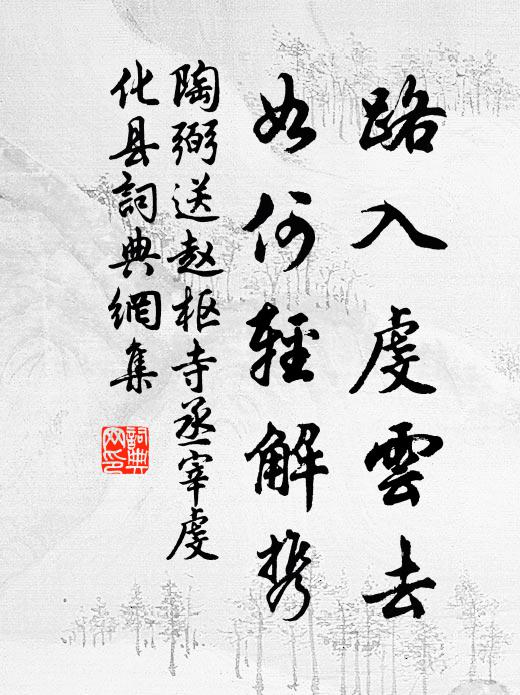 路入虔雲去
如何輕解攜
陶弼送赵枢寺丞宰虔
化县詞典網集
詞典
网印